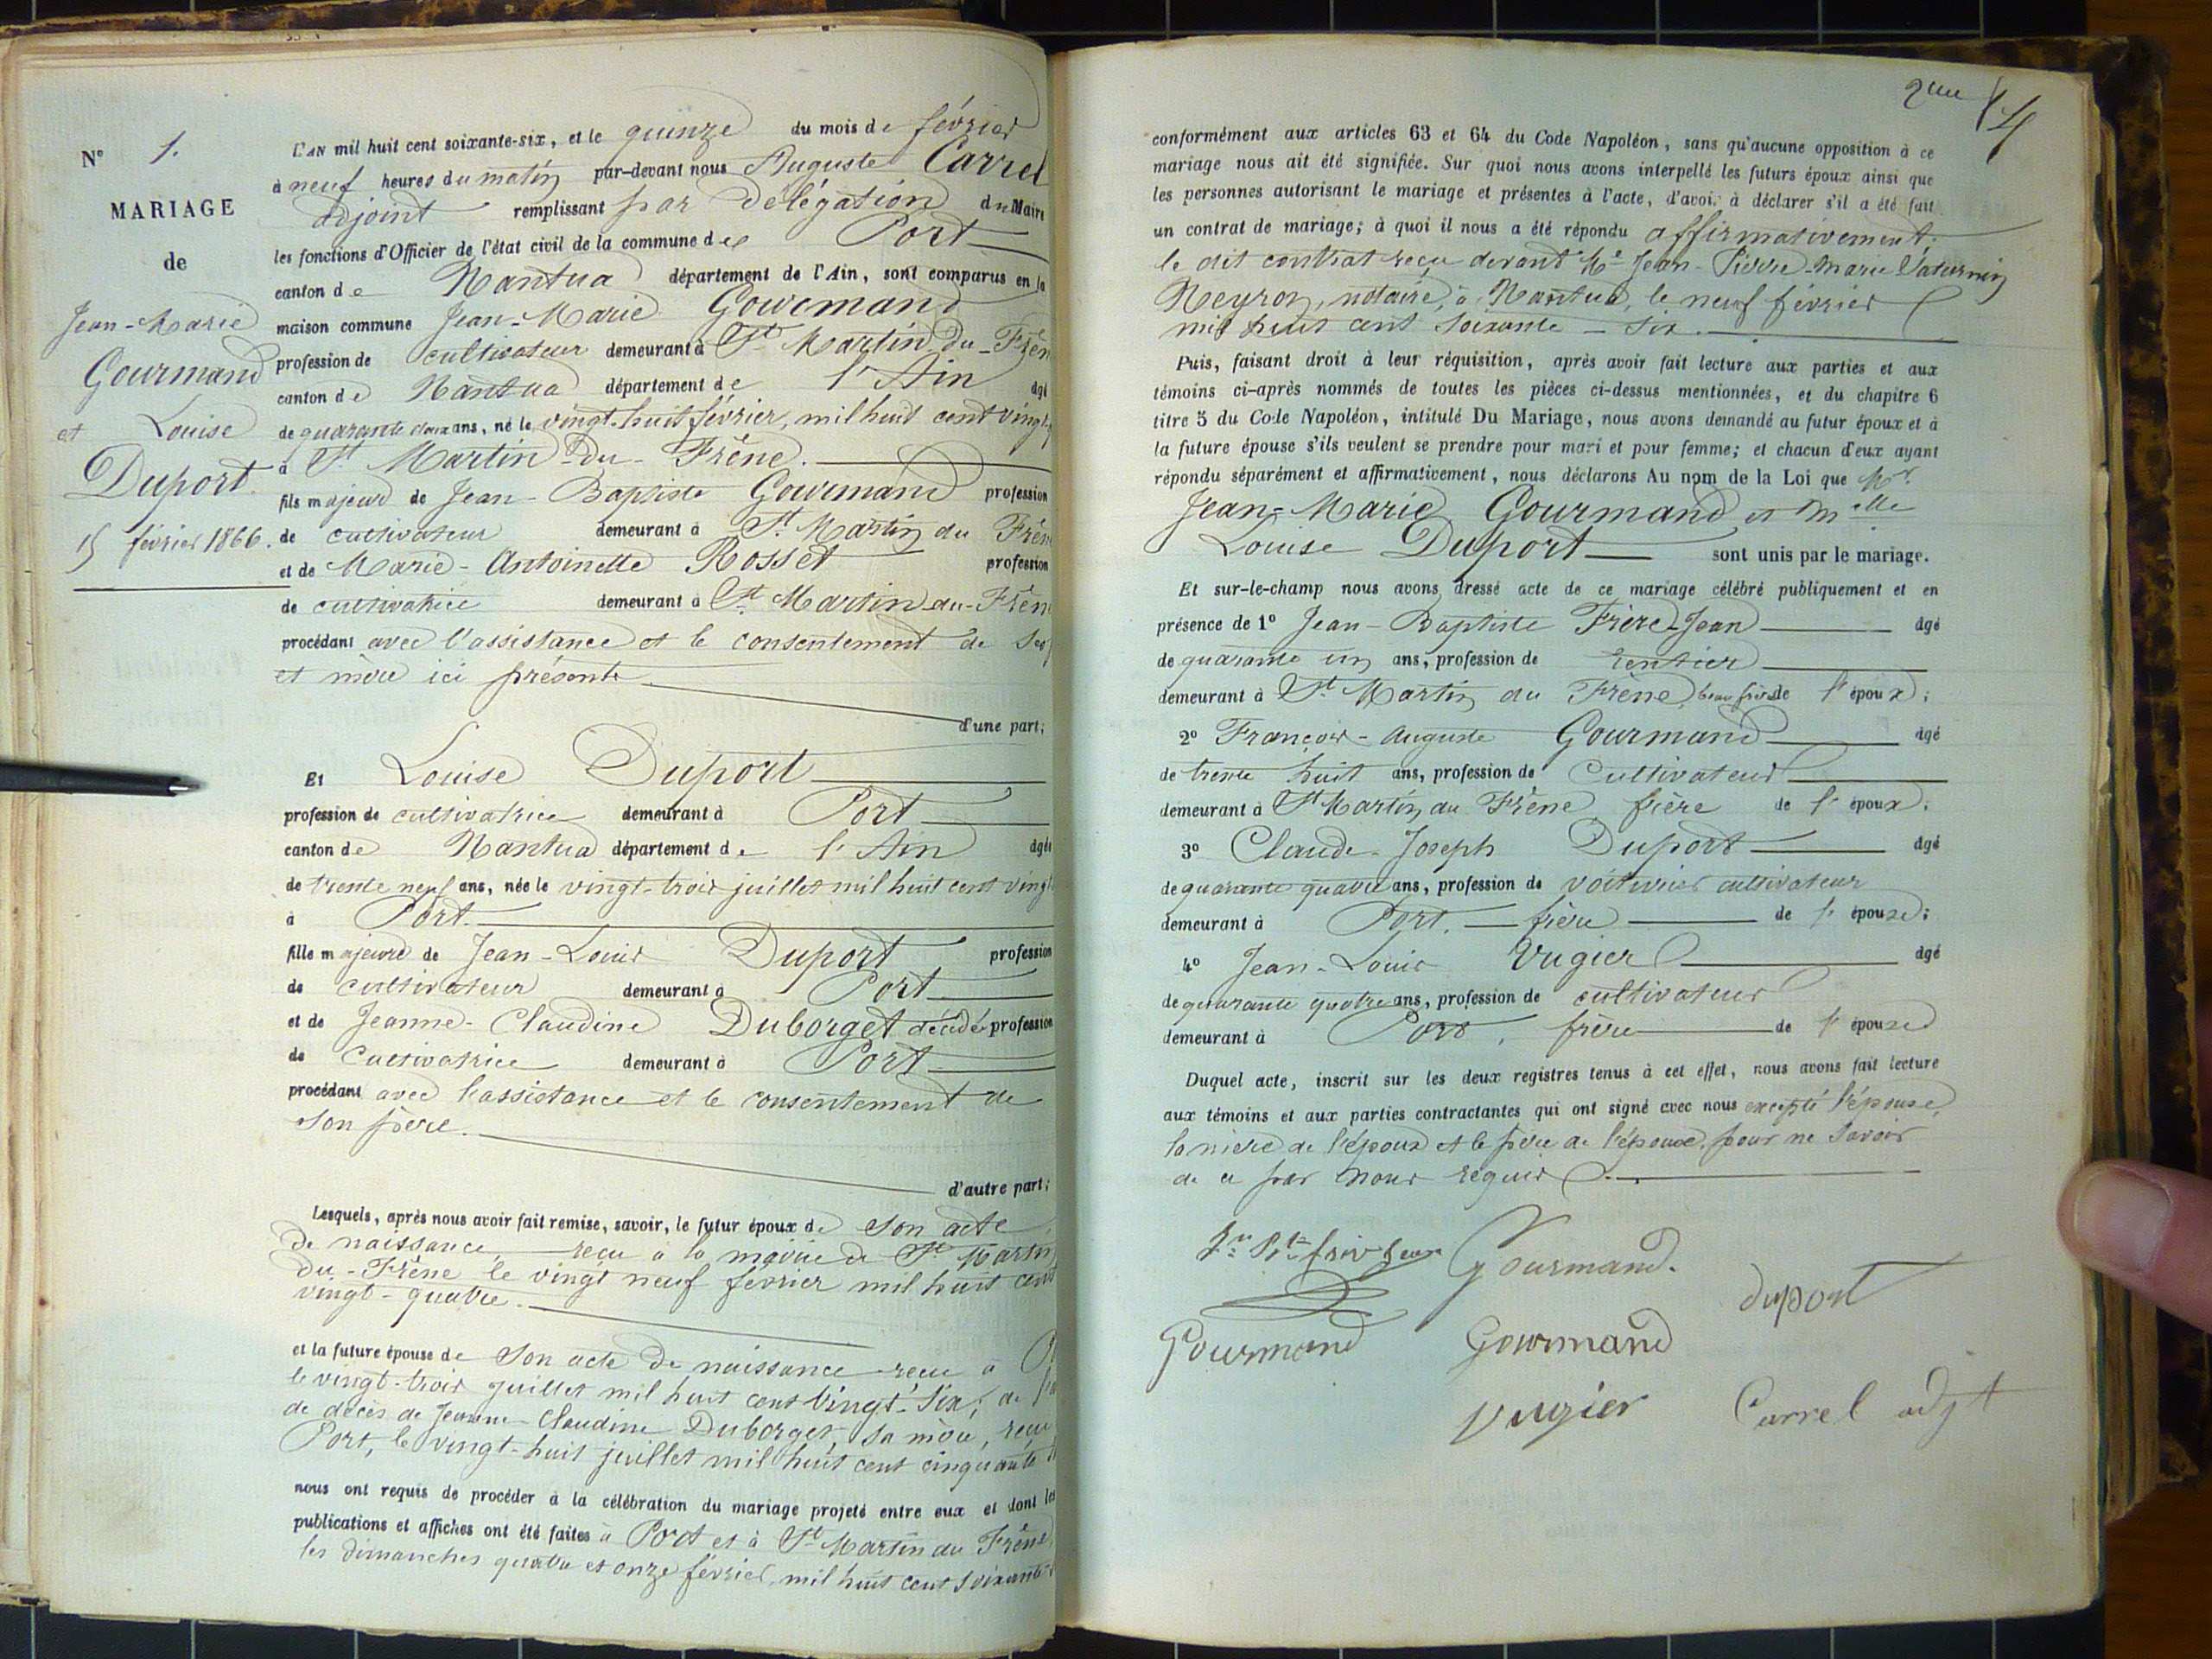 N° 1.
MARIAGE
de
Jean-Marie
Gourmand
et Louise
Duport
15 février 1866.
L'AN mil huit cent soixante-six, et le quinze du mois de février
à neuf heures du matin par-devant nous Auguste Carrel
adjoint remplissant par délégation du Maire
les fonctions d'Officier de l'état civil de la commune de Port
canton de Nantua département de l'Ain, sont comparus en la
maison commune Jean-Marie Gourmand
profession de cultivateur demeurant à St Martin-du-Frêne
canton de Nantua département de l'Ain âgé
de quarante deux ans, né le vingt-huit février, mil huit cent vingt
à St Martin-du-Frêne.
fils majeur de Jean-Baptiste Gourmand profession
de cultivateur demeurant à St Martin du Frêne
et de Marie-Antoinette Rosset profession
de cultivatrice demeurant à St Martin-du-Frêne
procédant avec l'assistance et le consentement de ses
et mère ici présents
d'une part;
Et Louise Duport
profession de cultivatrice demeurant à Port
canton de Nantua département de l'Ain âgée
de trente neuf ans, née le vingt-trois juillet mil huit cent vingt
à Port.
fille majeure de Jean-Louis Duport profession
de cultivateur demeurant à Port
et de Jeanne-Claudine Duborget décédée profession
de cultivatrice demeurant à Port
procédant avec l'assistance et le consentement de
son père.
d'autre part;
Lesquels, après nous avoir fait remise, savoir, le futur époux de son acte
de naissance, reçu à la mairie de St Martin
du-Frêne le vingt neuf février mil huit cent
vingt-quatre.
et la future épouse de son acte de naissance reçu à
le vingt-trois juillet mil huit cent vingt-six; de
de décès de Jeanne-Claudine Duborget, sa mère, reçu
Port, le vingt-huit juillet mil huit cent cinquante
nous ont requis de procéder à la célébration du mariage projeté entre eux et dont les
publications et affiches ont été faites à Port et à St Martin du Frêne
les dimanches quatre et onze février, mil huit cent soixante
2me 4
conformément aux articles 63 et 64 du Code Napoléon, sans qu'aucune opposition à ce
mariage nous ait été signifiée. Sur quoi nous avons interpellé les futurs époux ainsi que
les personnes autorisant le mariage et présentes à l'acte, d'avoir à déclarer s'il a été fait
un contrat de mariage; à quoi il nous a été répondu affirmativement.
le dit contrat reçu devant Me Jean-Pierre-Marie Saturnin
Neyron, notaire, à Nantua, le neuf février
mil huit cent soixante-six.
Puis, faisant droit à leur réquisition, après avoir fait lecture aux parties et aux
témoins ci-après nommés de toutes les pièces ci-dessus mentionnées, et du chapitre 6
titre 5 du Code Napoléon, intitulé Du Mariage, nous avons demandé au futur époux et à
la future épouse s'ils veulent se prendre pour mari et pour femme; et chacun d'eux ayant
répondu séparément et affirmativement, nous déclarons Au nom de la Loi que Mr
Jean-Marie Gourmand et Melle
Louise Duport sont unis par le mariage.
Et sur-le-champ nous avons dressé acte de ce mariage célébré publiquement et en
présence de 1° Jean-Baptiste Frère-Jean âgé
de quarante un ans, profession de rentier
demeurant à St Martin du Frêne, beau frère de l'époux;
2° François-Auguste Gourmand âgé
de trente huit ans, profession de Cultivateur
demeurant à St Martin du Frêne frère de l'époux;
3° Claude-Joseph Duport âgé
de quarante quatre ans, profession de voiturier cultivateur
demeurant à Port. frère de l'épouse;
4° Jean-Louis Vugier âgé
de quarante quatre ans, profession de cultivateur
demeurant à Port, frère de l'épouse
Duquel acte, inscrit sur les deux registres tenus à cet effet, nous avons fait lecture
aux témoins et aux parties contractantes qui ont signé avec nous excepté l'épouse,
la mère de l'époux et le père de l'épouse, pour ne savoir
de ce par nous requis
Jn Bte frère Jean Gourmand.
duport
Gourmand Gourmand
Vugier Carrel adjt